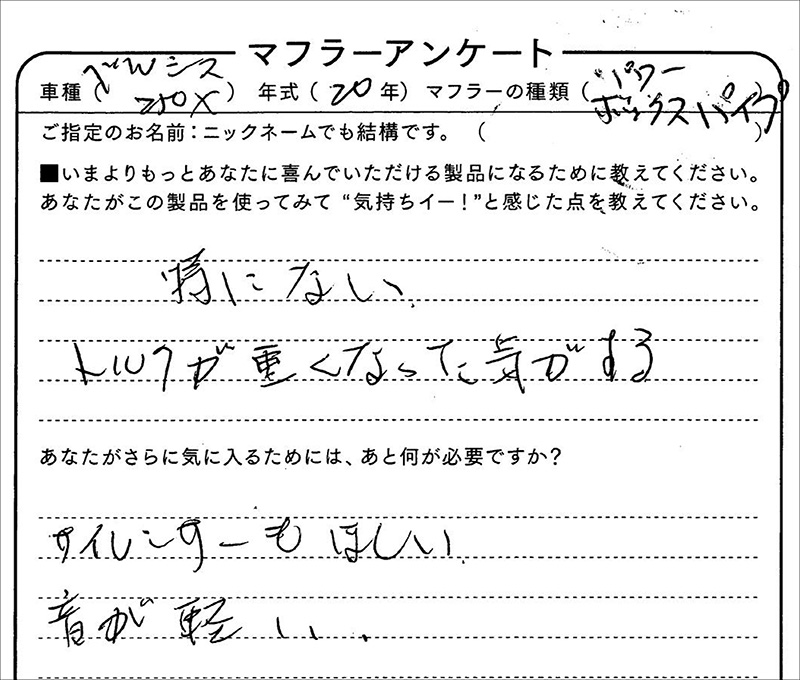 マフラーアンケート
車種(ベルシス250X) 年式(20年) マフラーの種類(パワーボックスパイプ)
ご指定のお名前:ニックネームでも結構です。( )
■いまよりもっとあなたに喜んでいただける製品になるために教えてください。
あなたがこの製品を使ってみて“気持ちイー!”と感じた点を教えてください。
特にない.
トルクが重くなった気がする
あなたがさらに気に入るためには、あと何が必要ですか?
サイレンサーもほしい.
音が軽い.